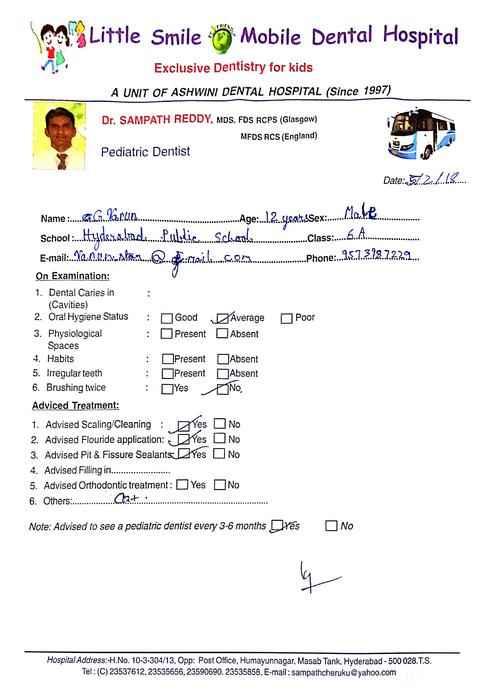 Little Smile Mobile Dental Hospital
Exclusive Dentistry for kids
A UNIT OF ASHWINI DENTAL HOSPITAL (Since 1997)
Dr. SAMPATH REDDY, MDS. FDS RCPS (Glasgow)
MFDS RCS (England)
Pediatric Dentist
Date: 5/2/18
Name: G. Varun Age: 12 years Sex: Male
School: Hyderabad Public School Class: 6 A
E-mail: @ g-mail. com Phone: 9573987229
On Examination:
1. Dental Caries in :
(Cavities)
2. Oral Hygiene Status : Good Average Poor
3. Physiological : Present Absent
Spaces
4. Habits : Present Absent
5. Irregular teeth : Present Absent
6. Brushing twice : Yes No
Adviced Treatment:
1. Advised Scaling/Cleaning : Yes No
2. Advised Flouride application: Yes No
3. Advised Pit & Fissure Sealants: Yes No
4. Advised Filling in....................
5. Advised Orthodontic treatment : Yes No
6. Others:
Note: Advised to see a pediatric dentist every 3-6 months Yes No
Hospital Address:-H.No. 10-3-304/13, Opp: Post Office, Humayunnagar, Masab Tank, Hyderabad - 500 028.T.S.
Tel : (C) 23537612, 23535656, 23590690. 23535858, E-mail : sampathcheruku@yahoo.com